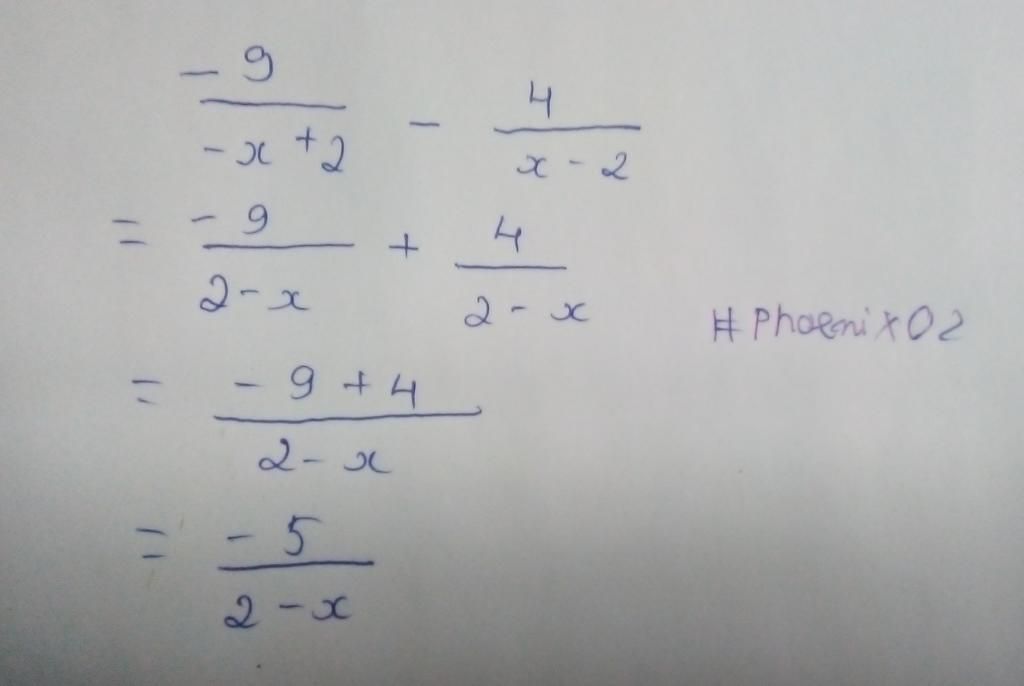 -9/(-x+2) - 4/(x-2)
= -9/(2-x) + 4/(2-x)
#Phoenix02
= (-9+4)/(2-x)
= -5/(2-x)